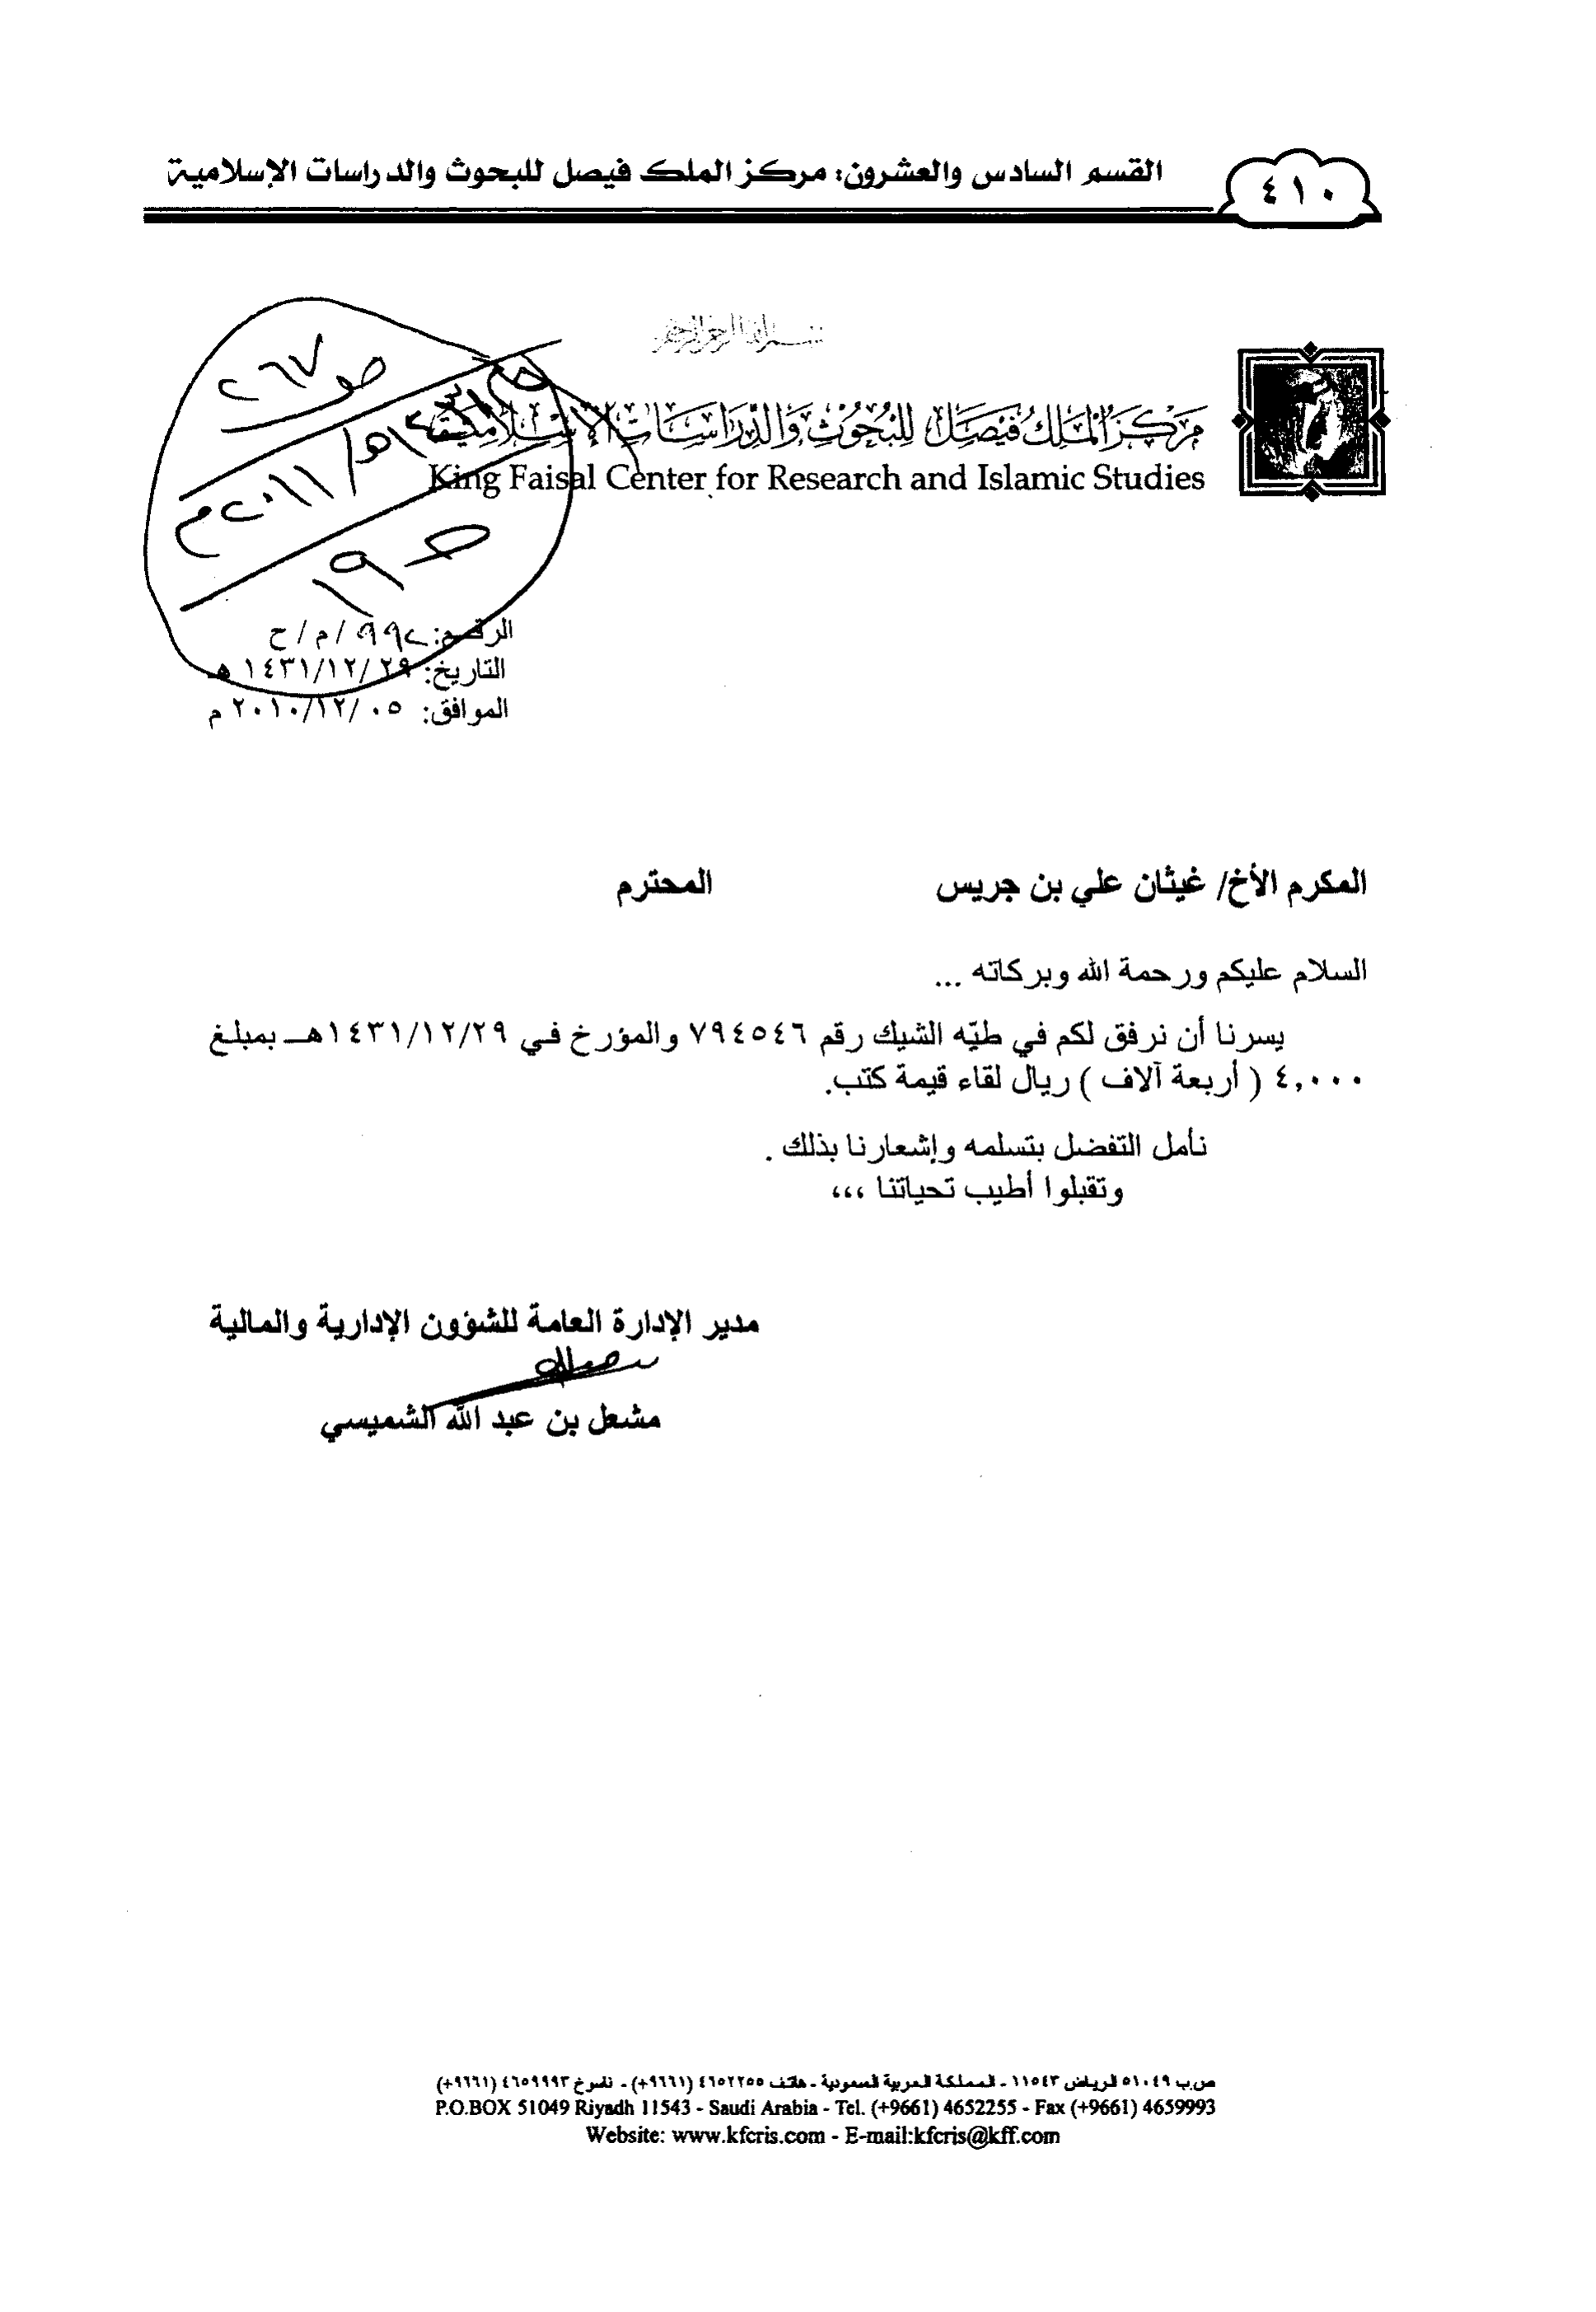 ٤١٠
القسم السادس والعشرون: مركز الملك فيصل للبحوث والدراسات الإسلامية
بسم الله الرحمن الرحيم
مركز الملك فيصل للبحوث والدراسات الإسلامية
King Faisal Center for Research and Islamic Studies
الرقم: ٩٩٢/م/ح
التاريخ: ١٤٣١/١٢/٢٩ هـ
الموافق: ٢٠١٠/١٢/٠٥ م
المكرم الأخ/ غيثان علي بن جريس المحترم
السلام عليكم ورحمة الله وبركاته ...
يسرنا أن نرفق لكم في طيّه الشيك رقم ٧٩٤٥٤٦ والمؤرخ في ١٤٣١/١٢/٢٩هـ بمبلغ
٤,٠٠٠ ( أربعة آلاف ) ريال لقاء قيمة كتب.
نأمل التفضل بتسلمه وإشعارنا بذلك .
وتقبلوا أطيب تحياتنا ،،،
مدير الإدارة العامة للشؤون الإدارية والمالية
مشعل بن عبد الله الشميسي
ص.ب ٥١٠٤٩ الرياض ١١٥٤٣ - المملكة العربية السعودية - هاتف ٤٦٥٢٢٥٥ (٩٦٦١+) - ناسوخ ٤٦٥٩٩٩٣ (٩٦٦١+)
P.O.BOX 51049 Riyadh 11543 - Saudi Arabia - Tel. (+9661) 4652255 - Fax (+9661) 4659993
Website: www.kfcris.com - E-mail:kfcris@kff.com